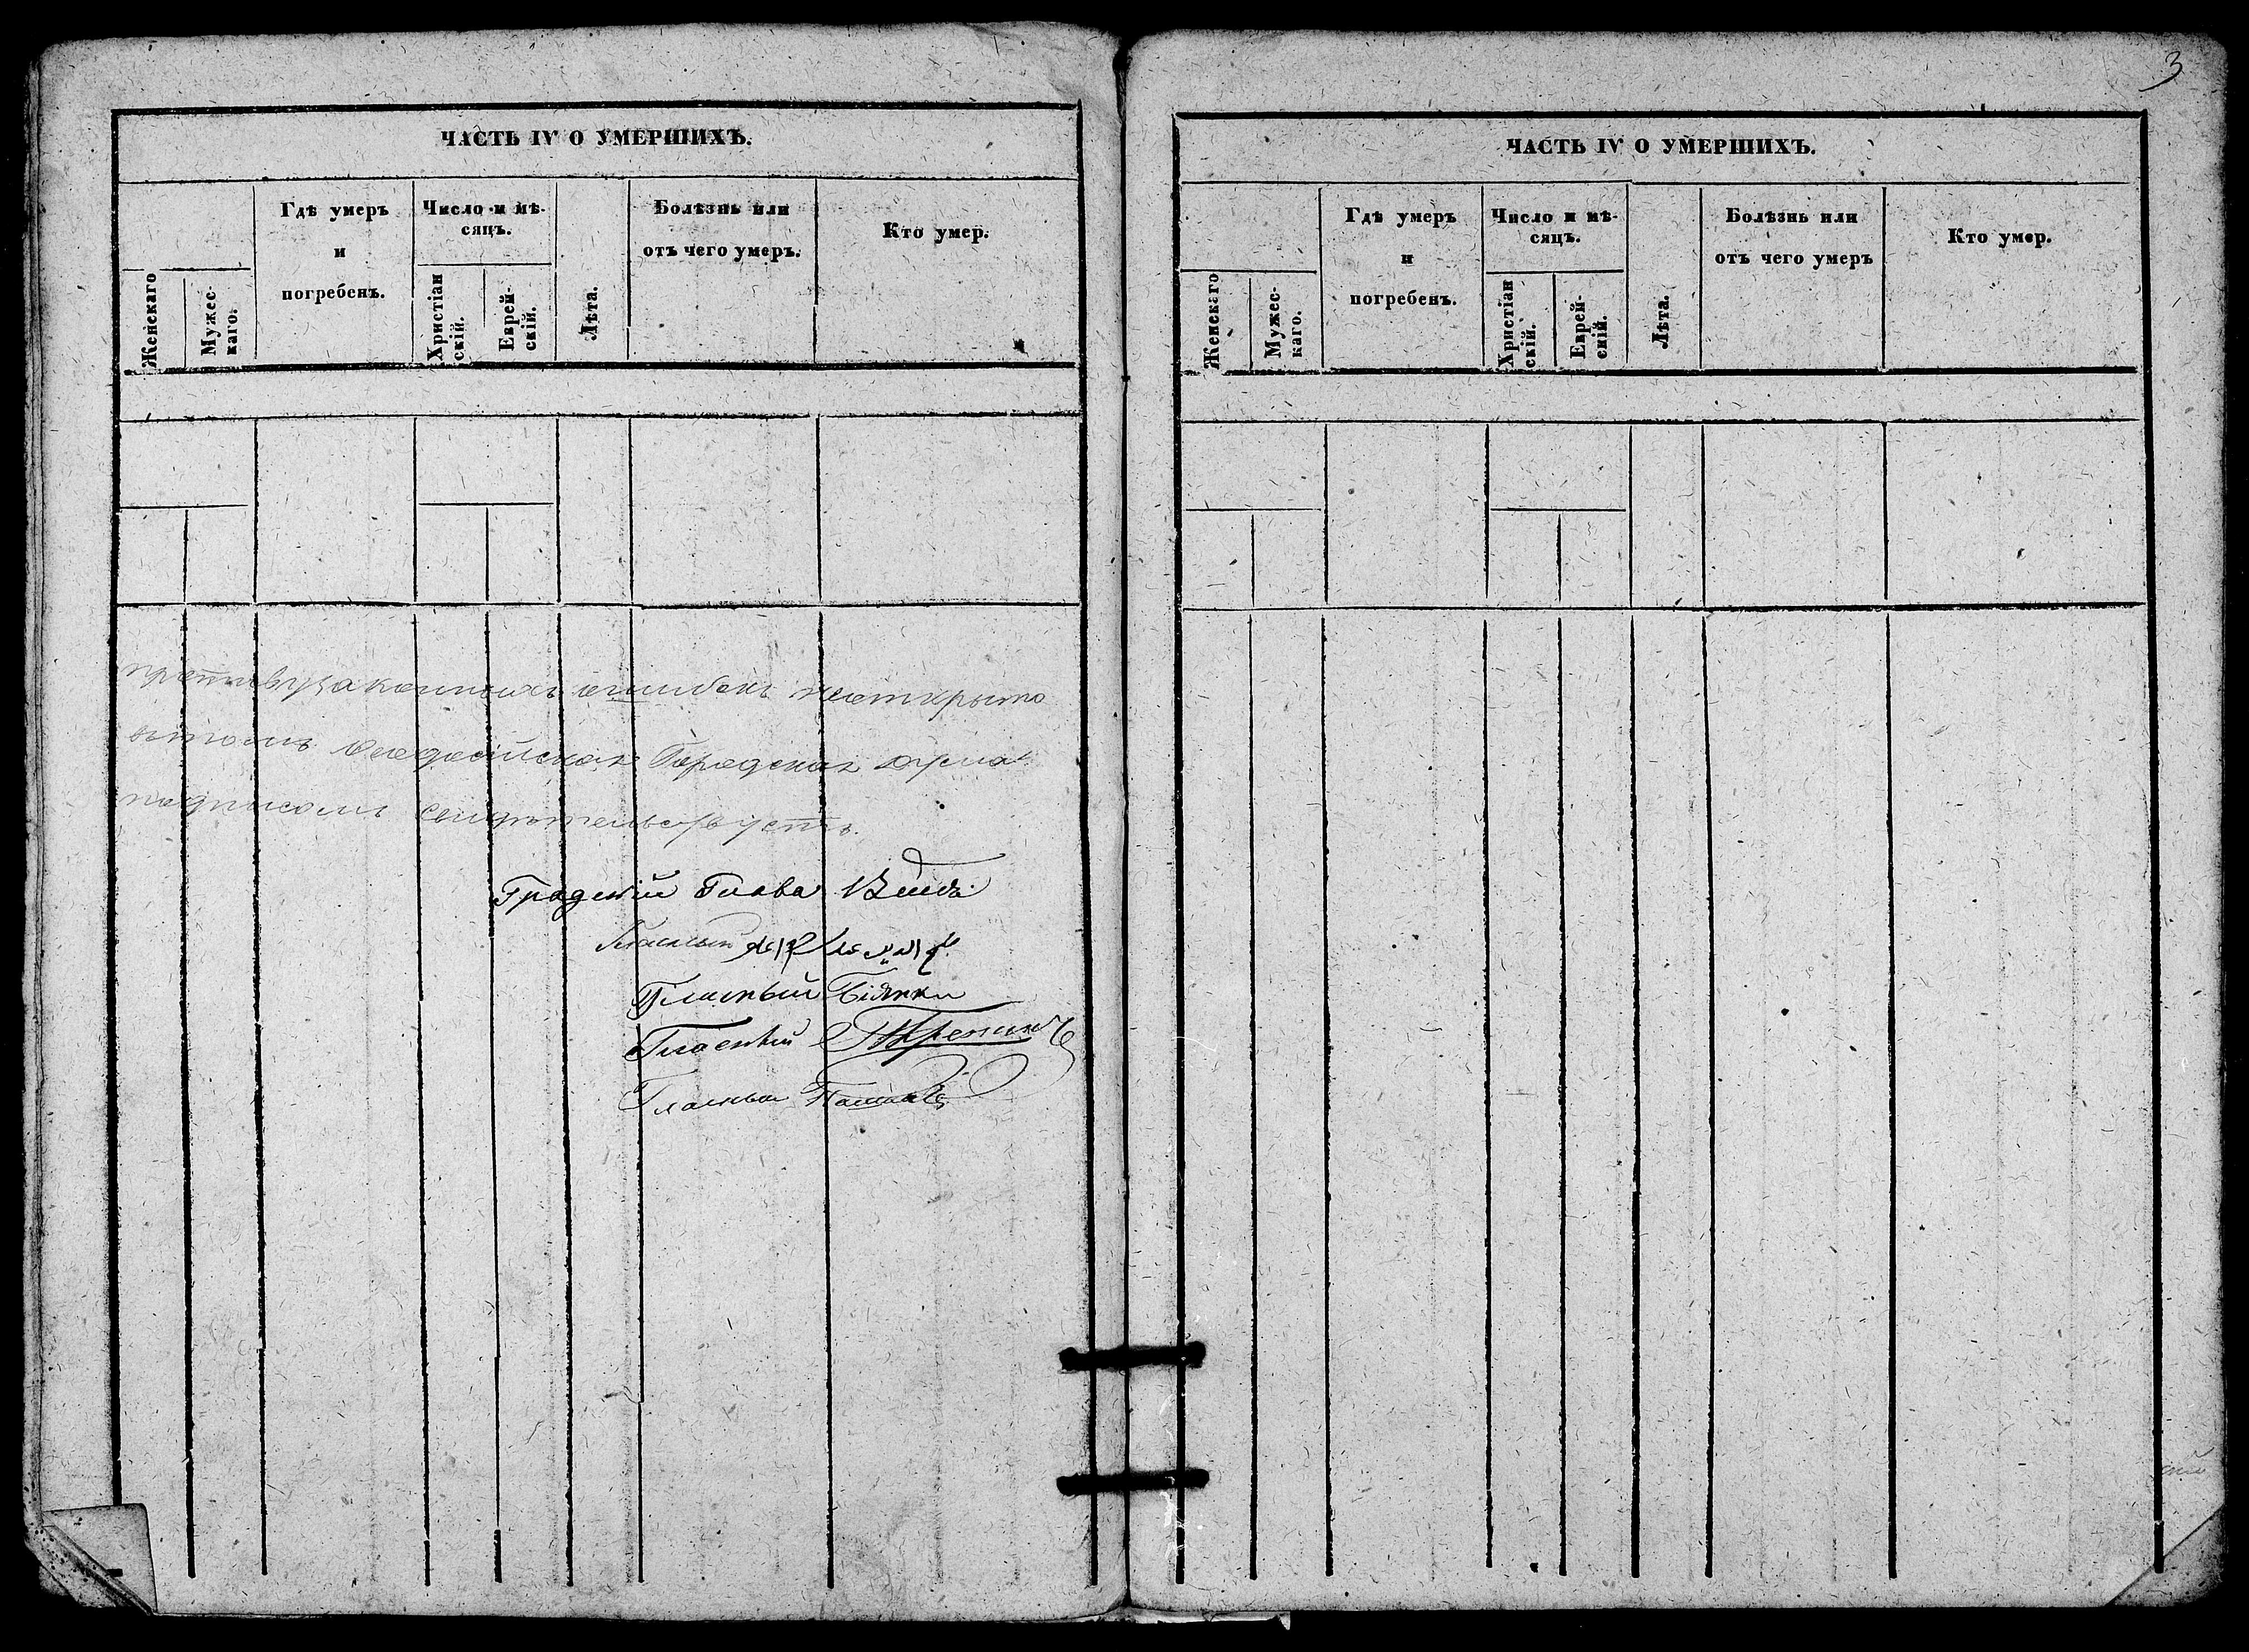 ЧАСТЬ IV О УМЕРШИХЪ.
Женскаго
Мужес-
каго.
Гдѣ умеръ
и
погребенъ.
Число и мѣ-
сяцъ.
Христіан
скій.
Еврей-
скій.
Лѣта.
Болѣзнь или
отъ чего умеръ.
Кто умер.
ошибокъ неоткрыто
вътомъ Феодосійская Городская дума
подписомъ свидѣтельствуетъ.
Градскій Глава
Гласный
Гласный Біянки
Гласный
Гласный
3
ЧАСТЬ IV О УМЕРШИХЪ.
Женскаго
Мужес-
каго.
Гдѣ умеръ
и
погребенъ.
Число и мѣ-
сяцъ.
Христіан
скій.
Еврей-
скій.
Лѣта.
Болѣзнь или
отъ чего умеръ
Кто умер.